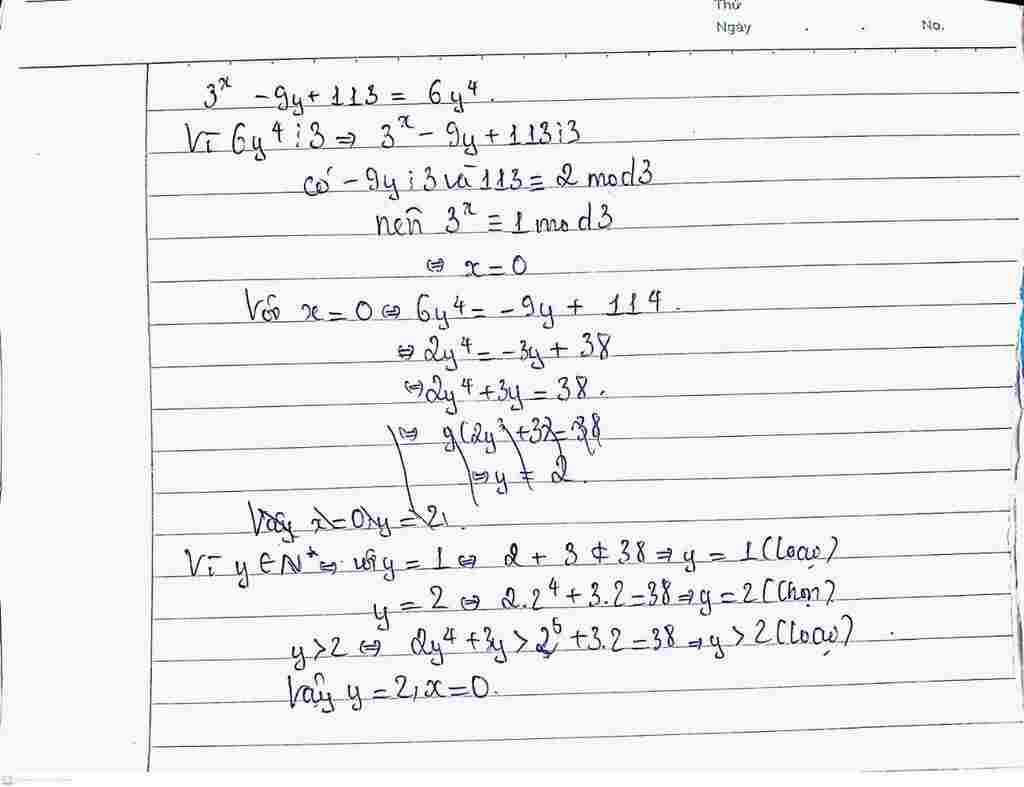 Thứ
Ngày . . No.
3ˣ - 9y + 113 = 6y⁴.
Vì 6y⁴ ⋮ 3 ⇒ 3ˣ - 9y + 113 ⋮ 3
có - 9y ⋮ 3 và 113 ≡ 2 mod 3
nên 3ˣ ≡ 1 mod 3
⇔ x = 0
Với x = 0 ⇔ 6y⁴ = - 9y + 114.
⇔ 2y⁴ = - 3y + 38
⇔ 2y⁴ + 3y = 38.
⇔ y(2y³ + 3) = 38
⇔ y = 2.
Vậy x = 0, y = 2.
Vì y ∈ N* ⇒ với y = 1 ⇔ 2 + 3 ≠ 38 ⇒ y = 1 (loại)
y = 2 ⇔ 2.2⁴ + 3.2 = 38 ⇒ y = 2 (chọn)
y > 2 ⇔ 2y⁴ + 3y > 2⁵ + 3.2 = 38 ⇒ y > 2 (loại).
Vậy y = 2, x = 0.